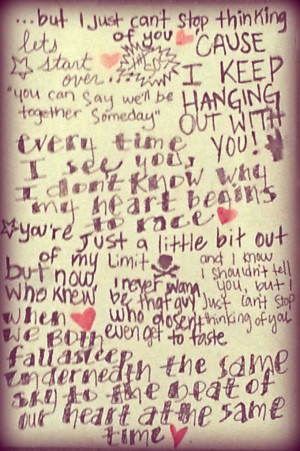 ...but I just can't stop thinking
of you
lets
start
over...
"you can say we'll be
together someday"
'CAUSE
I KEEP
HANGING
OUT WITH
YOU!
every time
I see you,
I don't know why
my heart begins
to race
you're just a little bit out
of my limit
but now
who knew
when
we both
fall asleep
underneath the same
sky to the beat of
our heart at the same
time
I never wanna
be that guy
who doesn't
even get to taste
and I know
I shouldn't tell
you, but I
Just can't stop
thinking of you